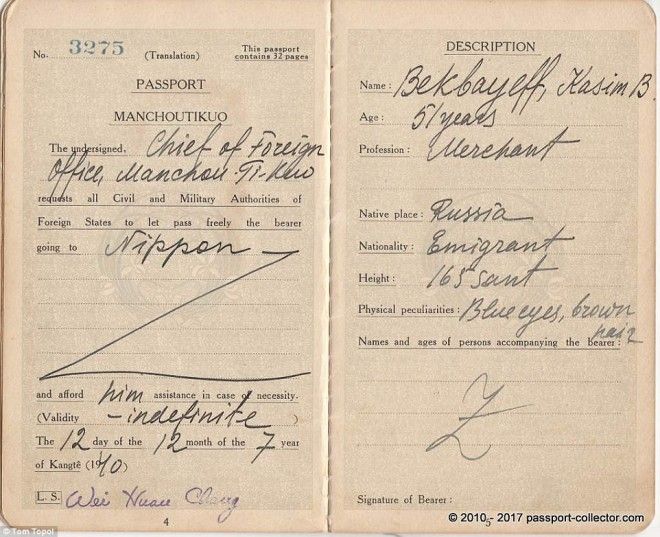 No. 3275 (Translation) This passport
contains 32 pages
PASSPORT
MANCHOUTIKUO
The undersigned, Chief of Foreign
Office, Manchou-Ti-Kuo
requests all Civil and Military Authorities of
Foreign States to let pass freely the bearer
going to Nippon —
and afford him assistance in case of necessity.
(Validity - indefinite )
The 12 day of the 12 month of the 7 year
of Kangtê (1940)
L. S. Wei Huan Chang
4
© Tom Topol
DESCRIPTION
Name: Bekbayeff, Kasim B.
Age: 51 years
Profession: Merchant
Native place: Russia
Nationality: Emigrant
Height: 165 sant
Physical peculiarities: Blue eyes, brown
hair
Names and ages of persons accompanying the Bearer:
Z
Signature of Bearer:
5
© 2010 - 2017 passport-collector.com